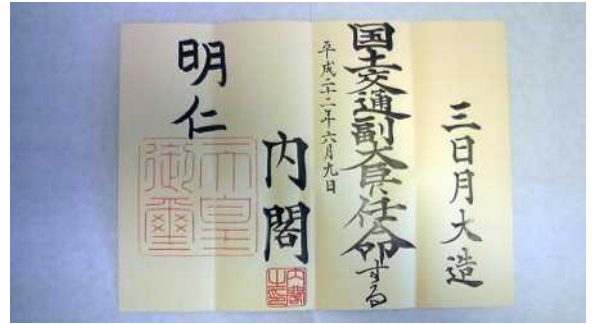 三日月大造
国土交通副大臣に任命する
平成二十二年六月九日
内閣
内閣之印
明仁
天皇御璽